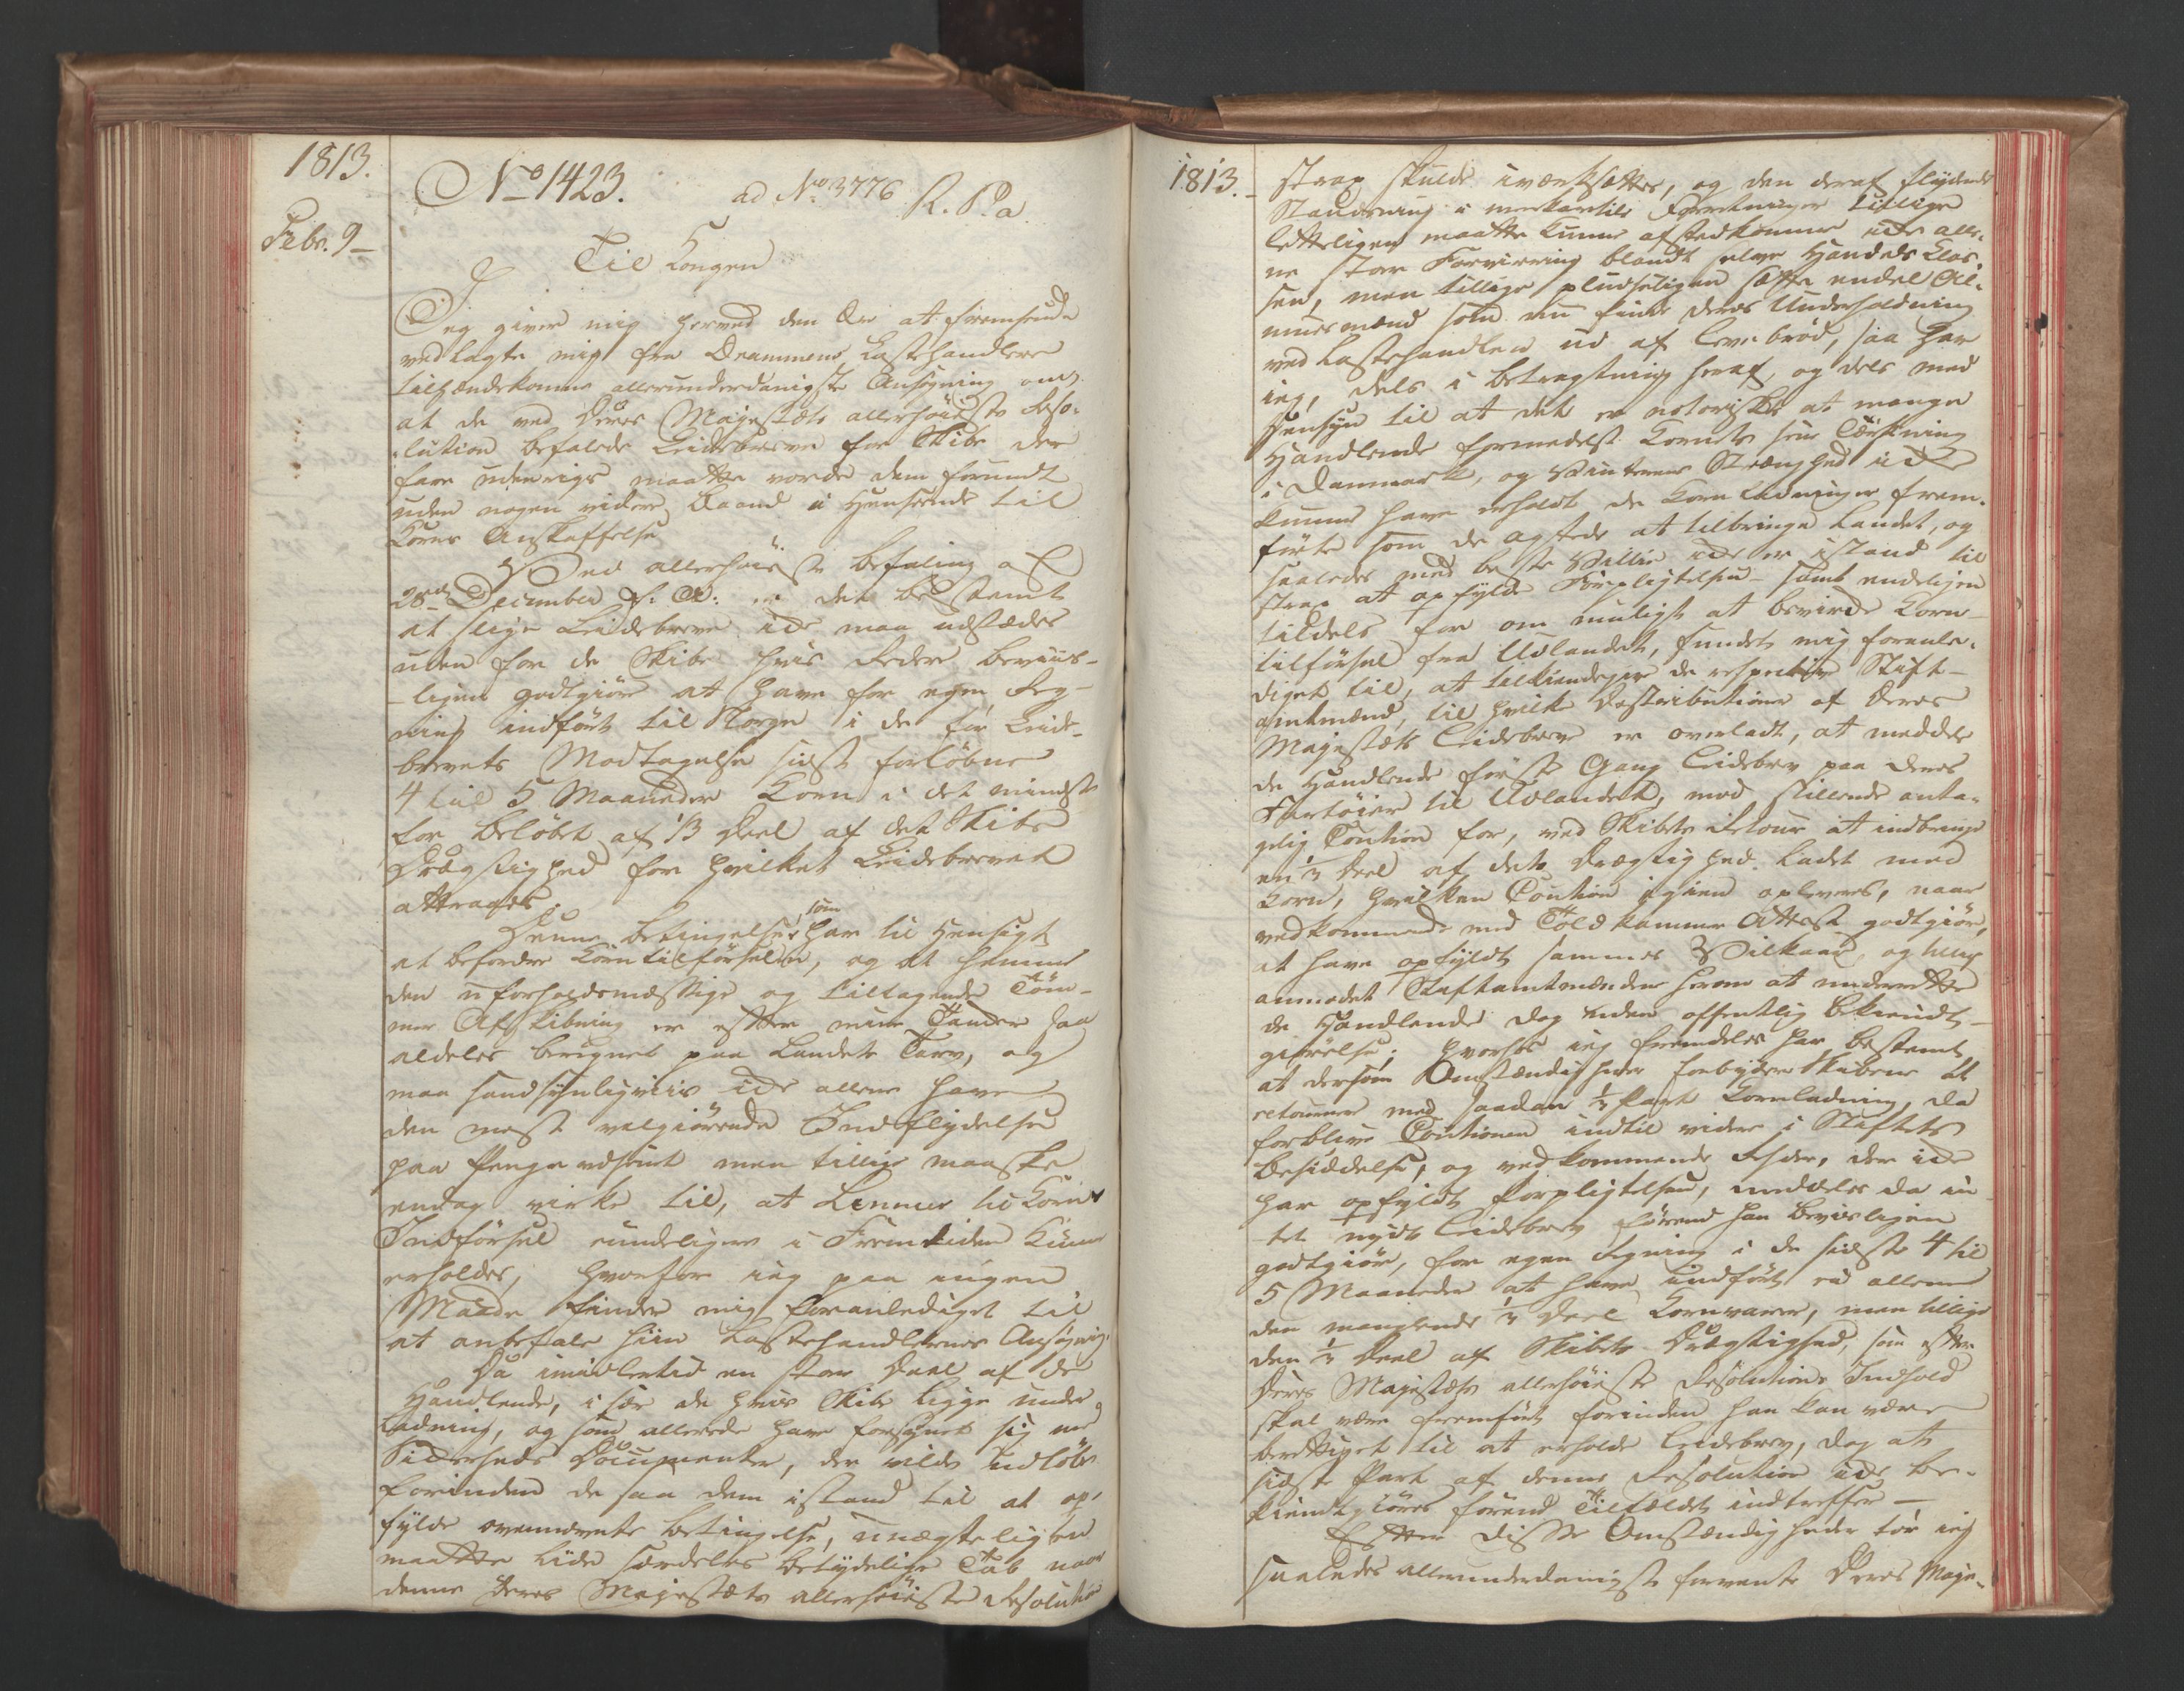 1813.
Febr. 9
No 1423.
ad No 3776
R. P. a
Til Kongen
Jeg giver mig herved den Ære at fremsende
vedlagte mig fra Drammens Lasthandlere
tilhændekomne allerunderdanigste Ansøgning om,
at de ved Deres Majestæts allerhøieste Reso-
lution befalede Leidebreve for Skibe der
fare udenrigs maatte vorde dem forundt
uden nogen videre Baand i Henseende til
Korns Anskaffelse
Ved allerhøieste Befaling af
28de December f. A. er det bestemt
at slige Leidebreve ide maa udstædes
uden for de Skibe hvis Reder beviis-
ligen godtgiør at have for egen Reg-
ning indført til Norge i de før Leide-
brevets Modtagelse sidst forløbne
4 til 5 Maaneder Korn i det mindste
for Beløbet af 1/3 Deel af det Skibs
Drægtighed for hvilket Leidebrevet
attraaes.
Denne Betingelse, som har til Hensigt
at befordre Korntilførselen, og at hemme
den uforholdsmæssige og tiltagende Töm-
mer Afskibning er efter mine Tanker saa
aldeles beregnet paa Landets Tarv, og
maa sandsynligviis ide allene have
den mest velgiörende Indflydelse
paa Pengevæsenet men tillige maaske
endog virke til, at Licencer til Korns
Indførsel eendeligen i Fremtiden kunne
erholdes, hvorfor jeg paa ingen
Maade finder mig foranlediget til
at anbefale hiin Lasthandlernes Ansøgning.
Da imidlertid en stor Deel af de
Handlende, i sær de hvis Skibe ligge under
Ladning, og som allerede have forsynet sig med
Sikerheds Documenter, der vilde udløbe
forinden de saae dem istand til at op-
fylde ovennævnte Betingelse, unægteligen
maatte lide særdeles betydelige Tab naar
denne Deres Majestæts allerhøieste Resolution
1813.
strax skulde iværksættes, og den deraf flydende
Standsning i merkantile Foretninger tillige
letteligen maatte kunne afstedkomme ide alle-
ne stor Forvirring blandt selve Handels Clas-
sen, men tillige pludseligen sætte endel Al-
muesmænd som nu finde deres Underholdning
ved Lasthandlen ud af Levebrød, saa har
jeg, dels i Betragtning heraf, og dels med
Hensyn til at det er notorisk at mange
Handlende formedelst Kornets sene Tærskning
i Danmark, og Vinterens Strænghed ide
kunne have erholdt de Kornladninger frem-
førte som de agtede at tilbringe Landet, og
saaledes med beste Villie ide er istand til
strax at opfylde Forpligtelsen - samt endeligen
tildels for om muligt at bevirke Korn-
tilførsel fra Udlandet, fundet mig foranle-
diget til, at tilkiendegive de respective Stift-
amtmænd, til hvilke Distributionen af Deres
Majestæts Leidebreve er overladt, at meddele
de Handlende første Gang Leidebrev paa deres
Fartöier til Udlandet, mod stillende anta-
gelig Caution for, ved Skibets Retour at indbringe
en 1/3 Deel af dets Drægtighed ladet med
Korn, hvilken Caution igien opleveres, naar
vedkommende med Toldkammer Attest godtgiør,
at have opfyldt sammes Vilkaar, og har jeg
anmodet Stiftamtmændene herom at underrette
de Handlende dog uden offentlig Bekiendt-
giørelse; hvorhos jeg fremdeles har bestemt,
at dersom Omstændigheder forbyder Skibene at
retournere med saadan 1/3 Part Kornladning, da
forblive Cautionen indtil videre i Stiftets
Besiddelse, og vedkommende Reder, der ide
har opfyldt Forpligtelsen, meddeles da in-
tet nyt Leidebrev førend han bevisligen
godtgiør, for egen Regning i de sidste 4 til
5 Maaneder at have indført ei allene
den manglende 1/3 Deel Kornvarer, men tillige
den 1/3 Deel af Skibets Drægtighed, som efter
Deres Majestæts allerhøieste Resolutions Indhold
skal være fremført forinden han kan være
berettiget til at erholde Leidebrev, dog at
sidste Part af denne Resolution ide be-
kiendtgiøres førend Tilfældet indtreffer -
Efter disse Omstændigheder tør jeg
saaledes allerunderdanigst forvente Deres Maje-